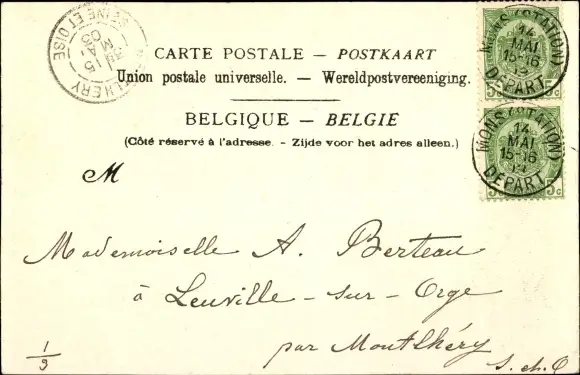 CARTE POSTALE — POSTKAART
Union postale universelle. — Wereldpostvereeniging.
BELGIQUE — BELGIE
(Côté réservé à l'adresse. - Zijde voor het adres alleen.)
M
Mademoiselle A. Berteau
à Leuville - sur - Orge
par Montlhéry
S. et O
1/9
MONS (STATION)
14
MAI
15-16
DÉPART
5c 5c
MONS (STATION)
14
MAI
15-16
DÉPART
5c 5c
SEINE ET OISE
15
03